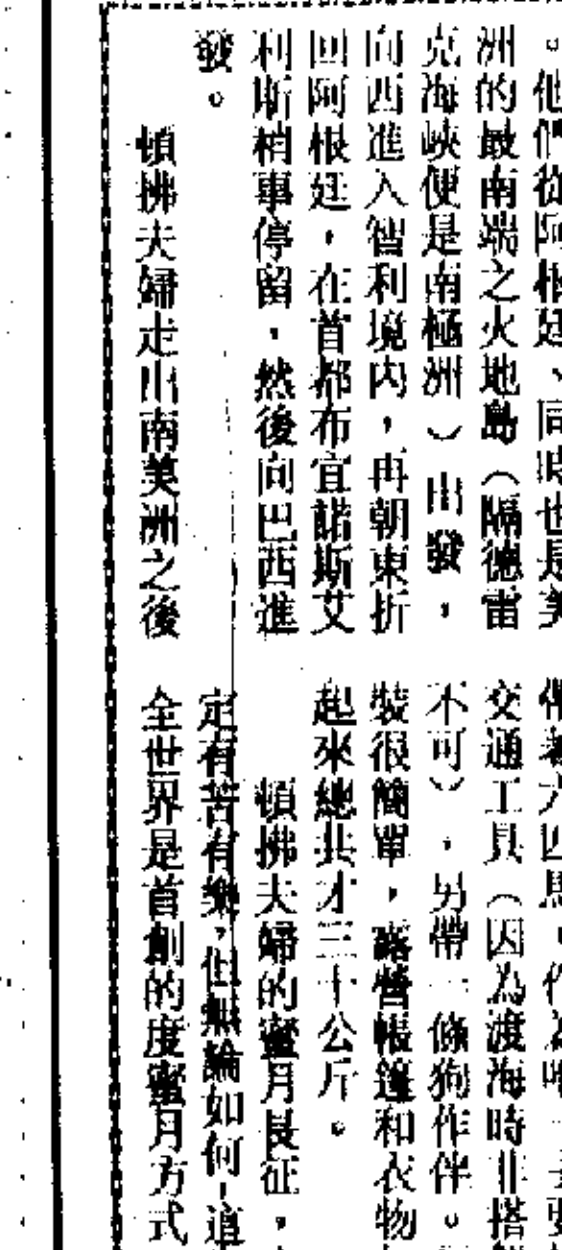 。他們從阿根廷、同時也是美
洲的最南端之火地島（隔德雷
克海峽便是南極洲）出發，
向西進入智利境內，再朝東折
回阿根廷，在首都布宜諾斯艾
利斯稍事停留，然後向巴西進
發。
頓拂夫婦走出南美洲之後
帶著六匹馬，作為唯一
交通工具（因為渡海時非搭
不可），另帶一條狗作伴。
裝很簡單，露營帳篷和衣物
起來總共才三十公斤。
頓拂夫婦的蜜月長征，
定有苦有樂，但無論如何，這
全世界是首創的度蜜月方式